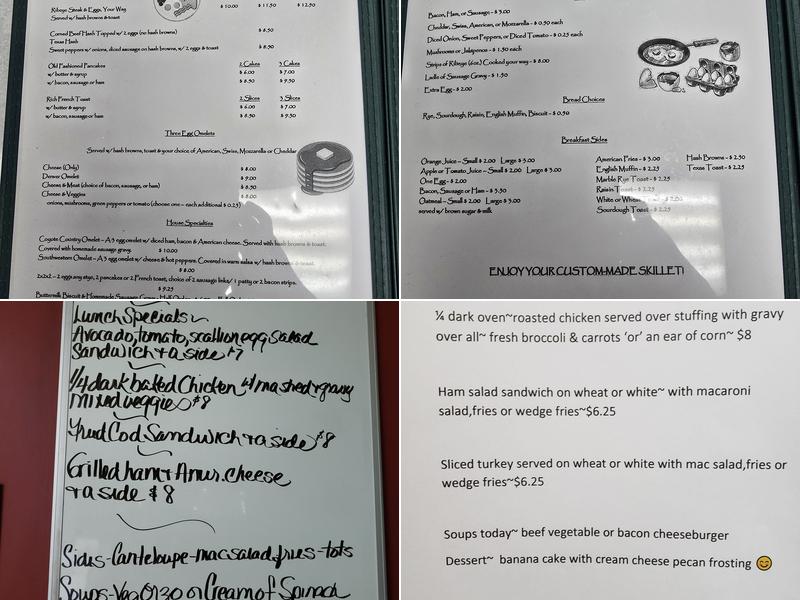 Ribeye Steak & Eggs, Your Way $ 10.00 $ 11.50 $ 12.50
Served w/ hash browns & toast
Corned Beef Hash Topped w/ 2 eggs (no hash browns) $8.50
Texas Hash
Sweet peppers w/ onions, diced sausage on hash browns, w/ 2 eggs & toast $8.50
Old Fashioned Pancakes 2 Cakes 3 Cakes
w/ butter & syrup $ 6.00 $ 7.00
w/ bacon, sausage or ham $ 8.50 $ 9.50
Rich French Toast 2 Slices 3 Slices
w/ butter & syrup $ 6.00 $ 7.00
w/ bacon, sausage or ham $ 8.50 $ 9.50
Three Egg Omelets
Served w/ hash browns, toast & your choice of American, Swiss, Mozzarella or Cheddar
Cheese (Only) $ 8.00
Denver Omelet $ 9.00
Cheese & Meat (choice of bacon, sausage, or ham) $ 8.50
Cheese & Veggies $ 8.00
onions, mushrooms, green peppers or tomato (choose one – each additional $ 0.25)
House Specialties
Coyote Country Omelet – A 3 egg omelet w/ diced ham, bacon & American cheese. Served with hash browns & toast.
Covered with homemade sausage gravy. $ 10.00
Southwestern Omelet – A 3 egg omelet w/ cheese & hot peppers. Covered in warm salsa w/ hash browns & toast.
$ 8.00
2x2x2 – 2 eggs any style, 2 pancakes or 2 French toast, choice of 2 sausage links/ 1 patty or 2 bacon strips.
$ 9.25
Buttermilk Biscuit & Homemade Sausage Gravy - Half Order
Bacon, Ham, or Sausage – $ 3.00
Cheddar, Swiss, American, or Mozzarella – $ 0.50 each
Diced Onion, Sweet Peppers, or Diced Tomato – $ 0.25 each
Mushrooms or Jalapenos – $ 1.50 each
Strips of Ribeye (6oz) Cooked your way – $ 8.00
Ladle of Sausage Gravy – $ 1.50
Extra Egg – $ 2.00
Bread Choices
Rye, Sourdough, Raisin, English Muffin, Biscuit – $ 0.50
Breakfast Sides
Orange Juice – Small $ 2.00 Large $ 3.00 American Fries – $ 3.00 Hash Browns – $ 2.50
Apple or Tomato Juice – Small $ 2.00 Large $ 3.00 English Muffin – $ 2.25 Texas Toast – $ 2.25
One Egg – $ 2.00 Marble Rye Toast – $ 2.25
Bacon, Sausage or Ham – $ 3.50 Raisin Toast – $ 2.25
Oatmeal – Small $ 2.00 Large $ 3.00 White or Wheat Toast – $ 2.00
served w/ brown sugar & milk Sourdough Toast – $ 2.25
ENJOY YOUR CUSTOM-MADE SKILLET!
Lunch Specials
Avocado, tomato, scallion egg salad
Sandwich + a side $7
1/4 dark baked Chicken w/ mashed + gravy
mixed veggies $8
Fried Cod Sandwich + a side $8
Grilled ham + Amer. cheese
+ a side $ 8
Sides - Canteloupe - mac salad, fries - tots
Soups - Veg Orzo or Cream of Spinach
¼ dark oven~roasted chicken served over stuffing with gravy
over all~ fresh broccoli & carrots ‘or’ an ear of corn~ $8
Ham salad sandwich on wheat or white~ with macaroni
salad,fries or wedge fries~$6.25
Sliced turkey served on wheat or white with mac salad,fries or
wedge fries~$6.25
Soups today~ beef vegetable or bacon cheeseburger
Dessert~ banana cake with cream cheese pecan frosting 😊